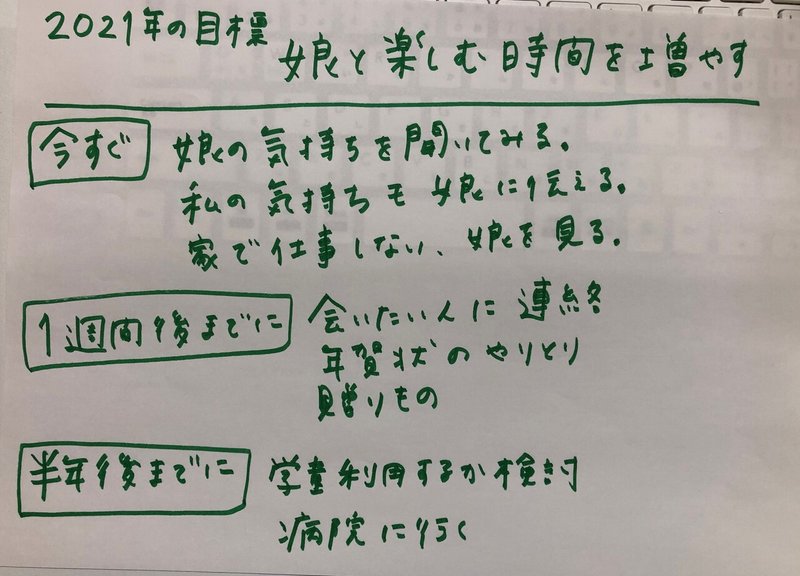 2021年の目標
娘と楽しむ時間を増やす
今すぐ
娘の気持ちを聞いてみる。
私の気持ちも娘に伝える。
家で仕事しない、娘を見る。
1週間後までに
会いたい人に連絡
年賀状のやりとり
贈りもの
半年後までに
学童利用するか検討
病院に行く